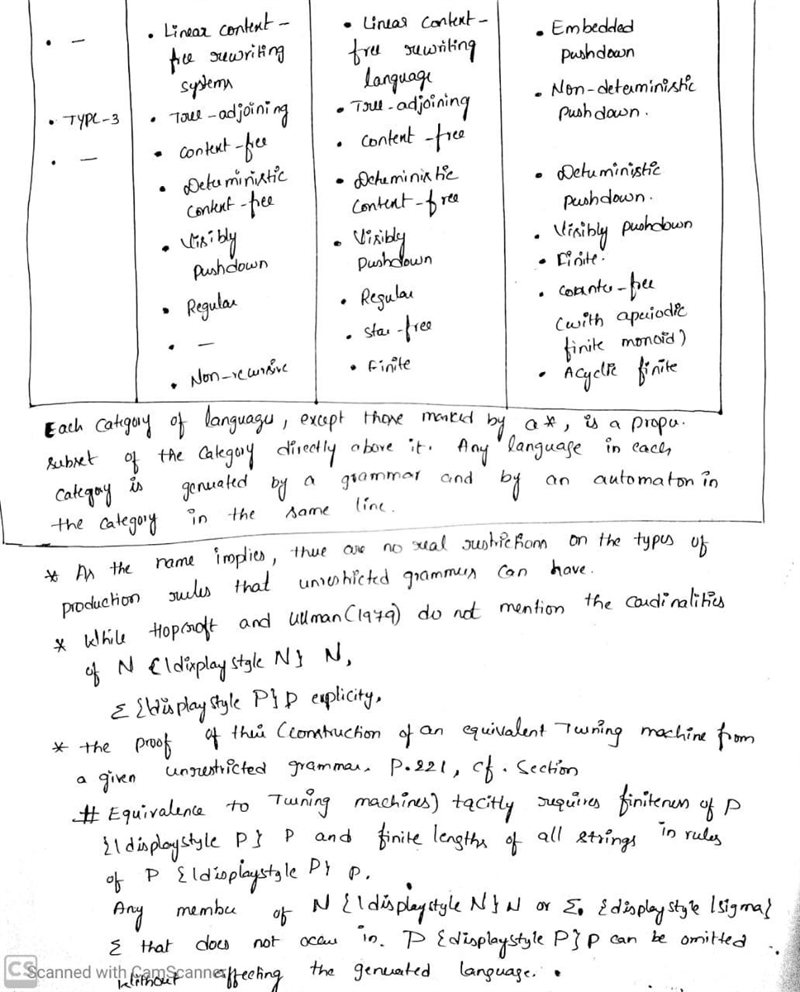 • —
• TYPE-3
• —
• Linear context-
free rewriting
systems
• Tree-adjoining
• Context-free
• Deterministic
context-free
• Visibly
pushdown
• Regular
• —
• Non-recursive
• Linear Context-
free rewriting
language
• Tree-adjoining
• Context-free
• Deterministic
Context-free
• Visibly
Pushdown
• Regular
• Star-free
• Finite
• Embedded
pushdown
• Non-deterministic
Pushdown.
• Deterministic
pushdown.
• Visibly pushdown
• Finite.
• Counter-free
(with aperiodic
finite monoid)
• Acyclic finite
Each category of languages, except those marked by a *, is a proper
subset of the category directly above it. Any language in each
category is generated by a grammar and by an automaton in
the category in the same line.
* As the name implies, there are no real restrictions on the types of
production rules that unrestricted grammars can have.
* While Hopcroft and Ullman (1979) do not mention the cardinalities
of N {\displaystyle N} N,
Σ {\displaystyle P} P explicity,
* the proof of their (construction of an equivalent Turning machine from
a given unrestricted grammar. P.221, cf. Section
# Equivalence to Turning machines) tacitly requires finiteness of P
{\displaystyle P} P and finite lengths of all strings in rules
of P {\displaystyle P} P.
Any member of N {\displaystyle N} N or Σ. {displaystyle \sigma}
Σ that does not occur in. P {displaystyle P} P can be omitted
without effecting the generated language.
CS Scanned with CamScanner